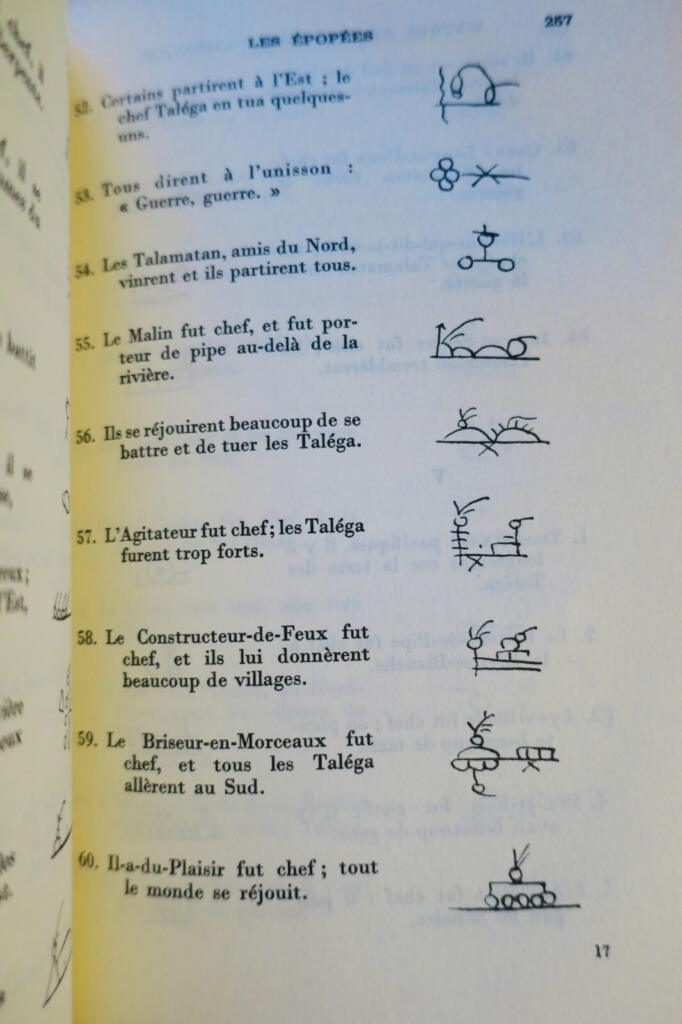 LES ÉPOPÉES
257
52. Certains partirent à l'Est ; le
chef Taléga en tua quelques-
uns.
53. Tous dirent à l'unisson :
« Guerre, guerre. »
54. Les Talamatan, amis du Nord,
vinrent et ils partirent tous.
55. Le Malin fut chef, et fut por-
teur de pipe au-delà de la
rivière.
56. Ils se réjouirent beaucoup de se
battre et de tuer les Taléga.
57. L'Agitateur fut chef; les Taléga
furent trop forts.
58. Le Constructeur-de-Feux fut
chef, et ils lui donnèrent
beaucoup de villages.
59. Le Briseur-en-Morceaux fut
chef, et tous les Taléga
allèrent au Sud.
60. Il-a-du-Plaisir fut chef ; tout
le monde se réjouit.
17